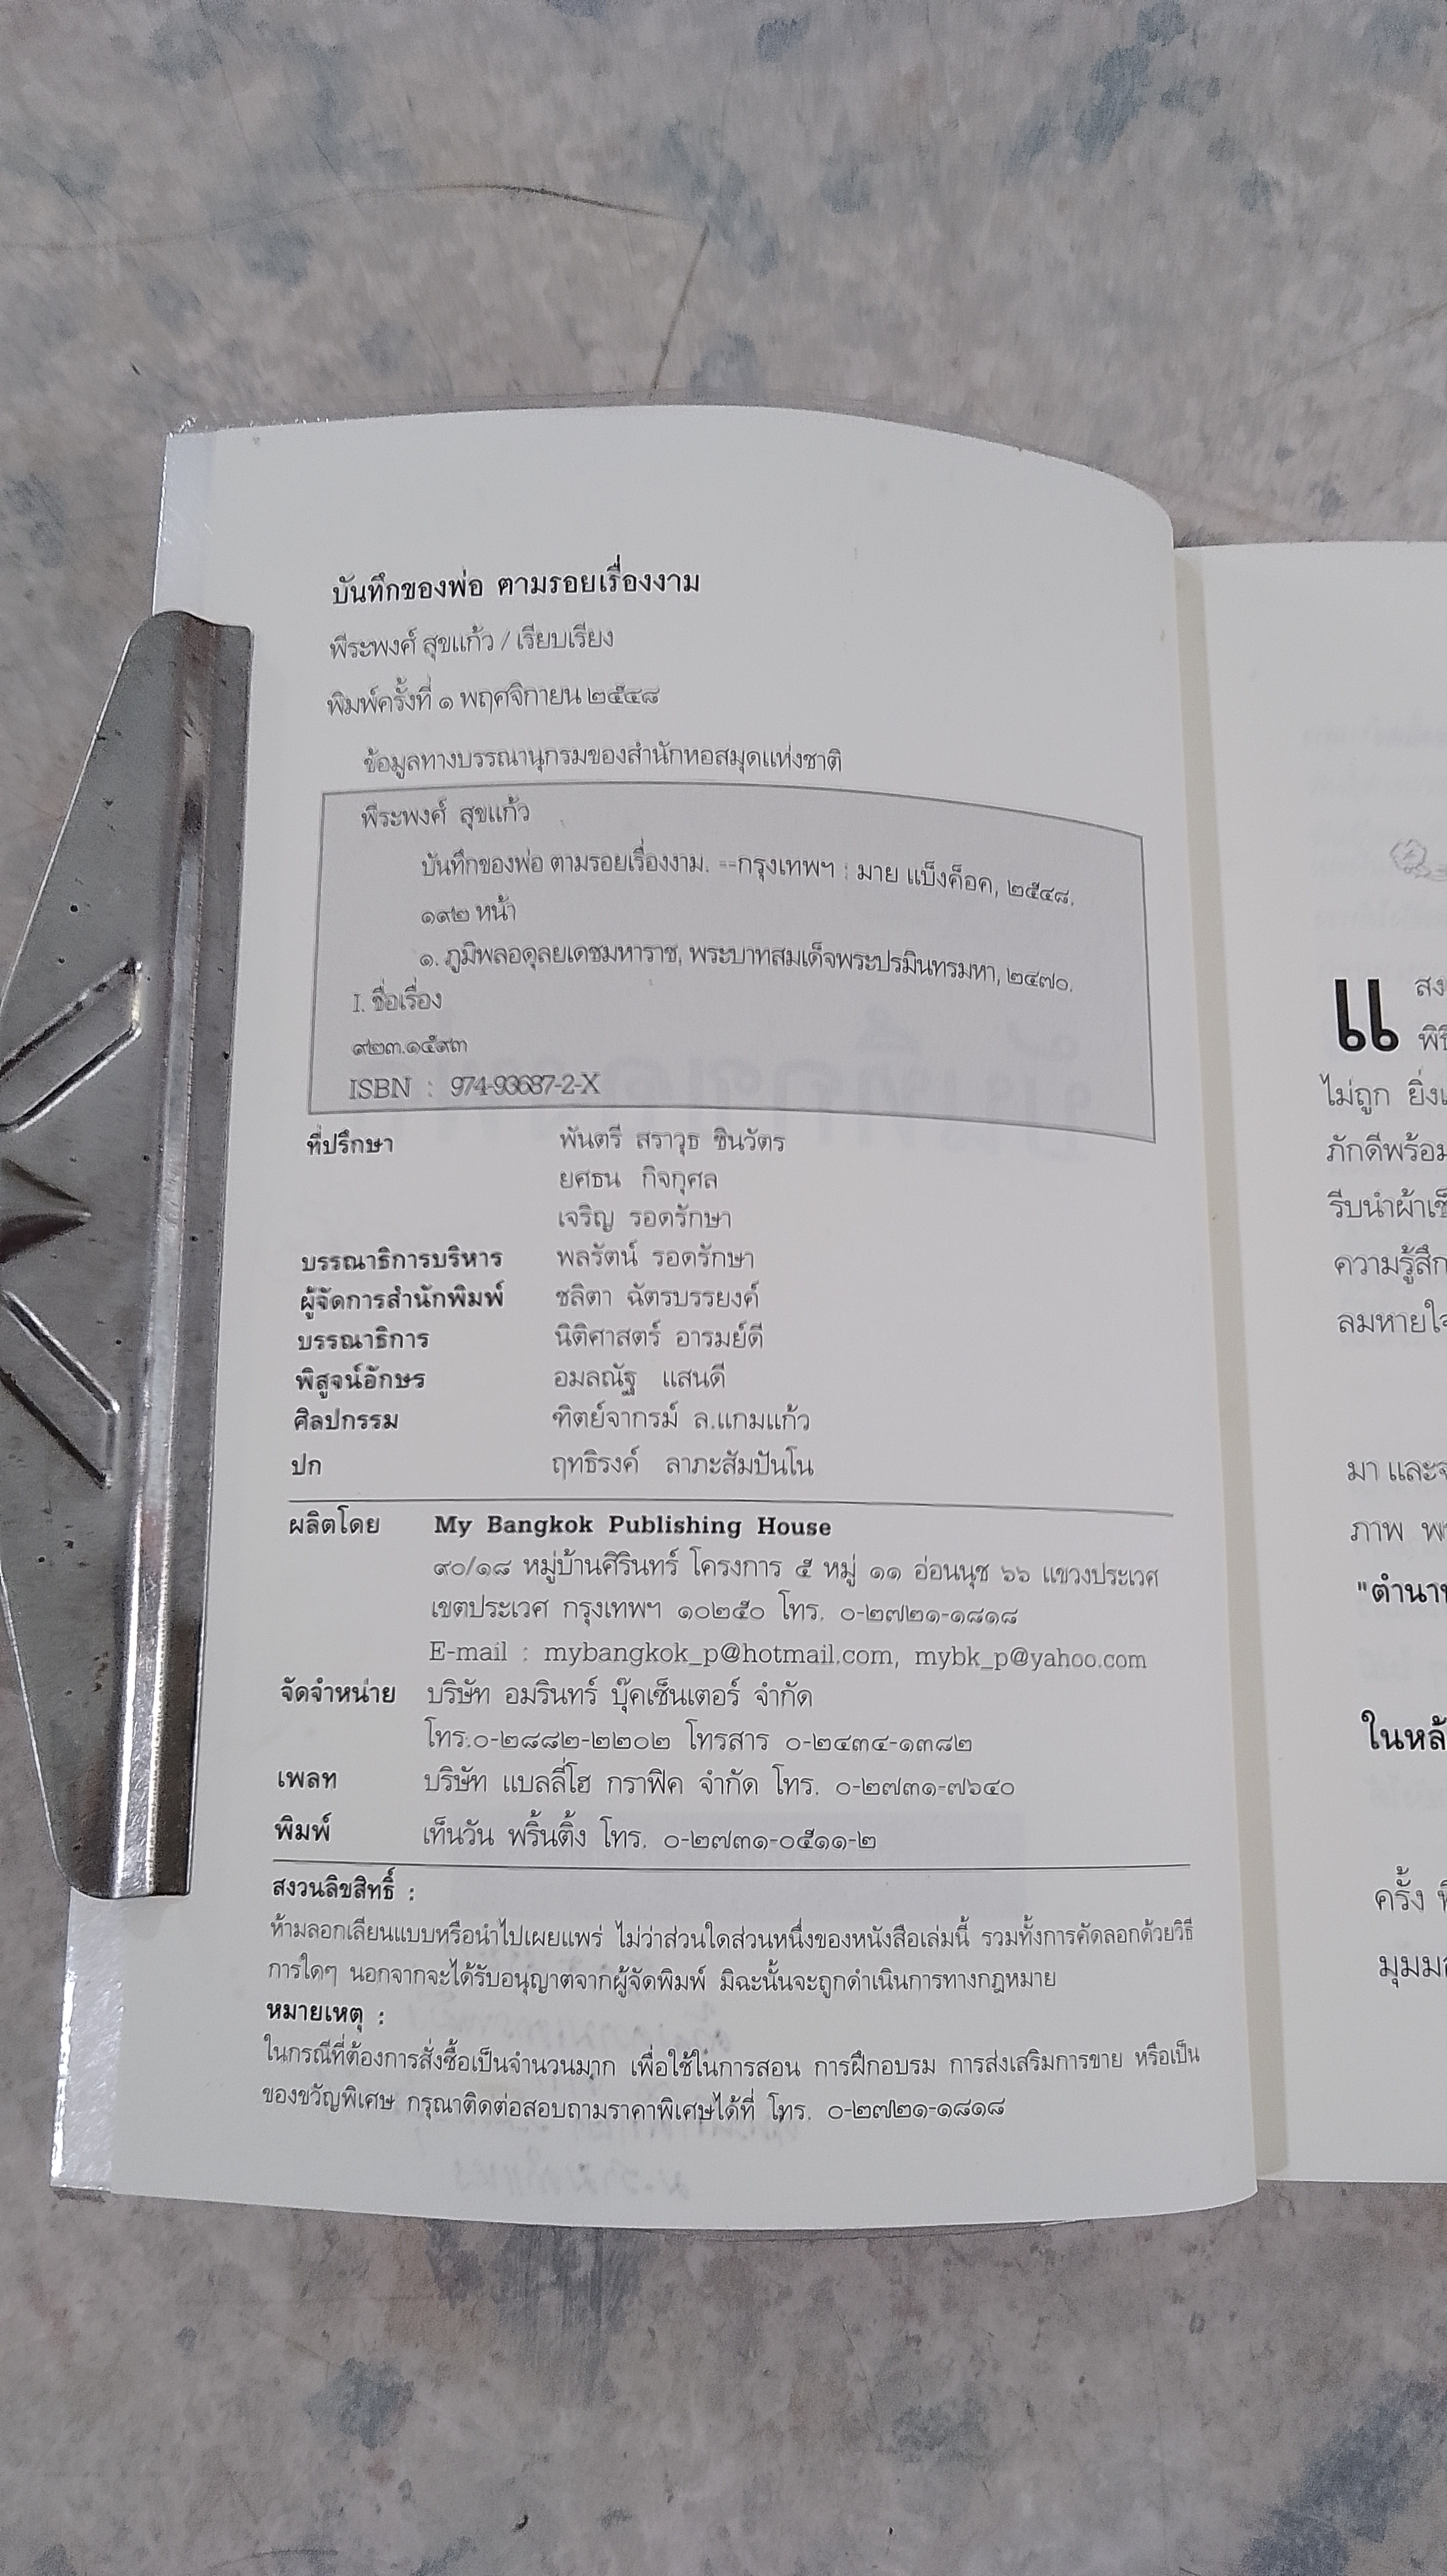 บันทึกของพ่อ ตามรอยเรื่องงาม
พีระพงศ์ สุขแก้ว / เรียบเรียง
พิมพ์ครั้งที่ ๑ พฤศจิกายน ๒๕๔๘
ข้อมูลทางบรรณานุกรมของสำนักหอสมุดแห่งชาติ
พีระพงศ์ สุขแก้ว
บันทึกของพ่อ ตามรอยเรื่องงาม. --กรุงเทพฯ : มาย แบ็งค็อค, ๒๕๔๘.
๑๙๒ หน้า
๑. ภูมิพลอดุลยเดชมหาราช, พระบาทสมเด็จพระปรมินทรมหา, ๒๔๗๐.
I. ชื่อเรื่อง
๙๒๓.๑๕๙๓
ISBN : 974-93687-2-X
ที่ปรึกษา พันตรี สราวุธ ชินวัตร
ยศธน กิจกุศล
เจริญ รอดรักษา
บรรณาธิการบริหาร พลรัตน์ รอดรักษา
ผู้จัดการสำนักพิมพ์ ชลิตา ฉัตรบรรยงค์
บรรณาธิการ นิติศาสตร์ อารมย์ดี
พิสูจน์อักษร อมลณัฐ แสนดี
ศิลปกรรม ฑิตย์จากรม์ ล.แกมแก้ว
ปก ฤทธิรงค์ ลาภะสัมปันโน
ผลิตโดย My Bangkok Publishing House
๙๐/๑๘ หมู่บ้านศิรินทร์ โครงการ ๕ หมู่ ๑๑ อ่อนนุช ๖๖ แขวงประเวศ
เขตประเวศ กรุงเทพฯ ๑๐๒๕๐ โทร. ๐-๒๗๒๑-๑๘๑๘
E-mail : mybangkok_p@hotmail.com, mybk_p@yahoo.com
จัดจำหน่าย บริษัท อมรินทร์ บุ๊คเซ็นเตอร์ จำกัด
โทร.๐-๒๘๘๒-๒๒๐๒ โทรสาร ๐-๒๔๓๔-๑๓๘๒
เพลท บริษัท แบลลี่โฮ กราฟิค จำกัด โทร. ๐-๒๗๓๑-๗๖๔๐
พิมพ์ เท็นวัน พริ้นติ้ง โทร. ๐-๒๗๓๑-๐๕๑๑-๒
สงวนลิขสิทธิ์ :
ห้ามลอกเลียนแบบหรือนำไปเผยแพร่ ไม่ว่าส่วนใดส่วนหนึ่งของหนังสือเล่มนี้ รวมทั้งการคัดลอกด้วยวิธี
การใดๆ นอกจากจะได้รับอนุญาตจากผู้จัดพิมพ์ มิฉะนั้นจะถูกดำเนินการทางกฎหมาย
หมายเหตุ :
ในกรณีที่ต้องการสั่งซื้อเป็นจำนวนมาก เพื่อใช้ในการสอน การฝึกอบรม การส่งเสริมการขาย หรือเป็น
ของขวัญพิเศษ กรุณาติดต่อสอบถามราคาพิเศษได้ที่ โทร. ๐-๒๗๒๑-๑๘๑๘
ไม่ถูก
ภักดีพร้อม
รีบนำผ้า
ความรู้สึก
ลมหายใจ
มา และ
ภาพ
ครั้ง